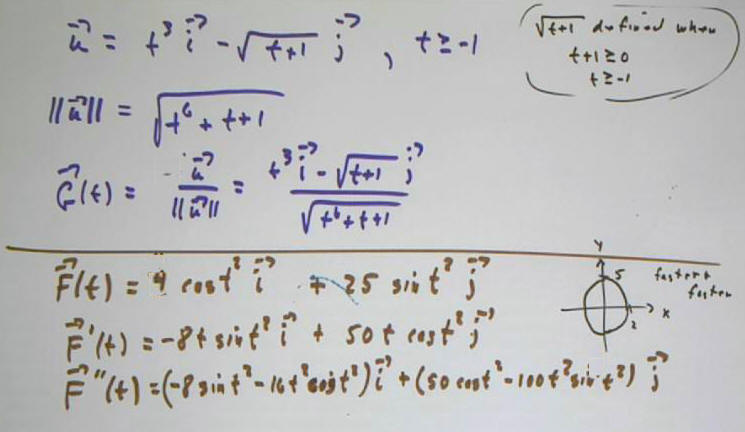 u⃗ = t³ i⃗ - √(t+1) j⃗ , t ≥ -1
√(t+1) defined when
t+1 ≥ 0
t ≥ -1
||u⃗|| = √(t⁶ + t + 1)
G⃗(t) = u⃗ / ||u⃗|| = (t³ i⃗ - √(t+1) j⃗) / √(t⁶ + t + 1)
F⃗(t) = 4 cos t² i⃗ + 25 sin t² j⃗
y 5 x 2
faster +
faster
F⃗'(t) = -8t sin t² i⃗ + 50t cos t² j⃗
F⃗''(t) = (-8 sin t² - 16t² cos t²) i⃗ + (50 cos t² - 100t² sin t²) j⃗